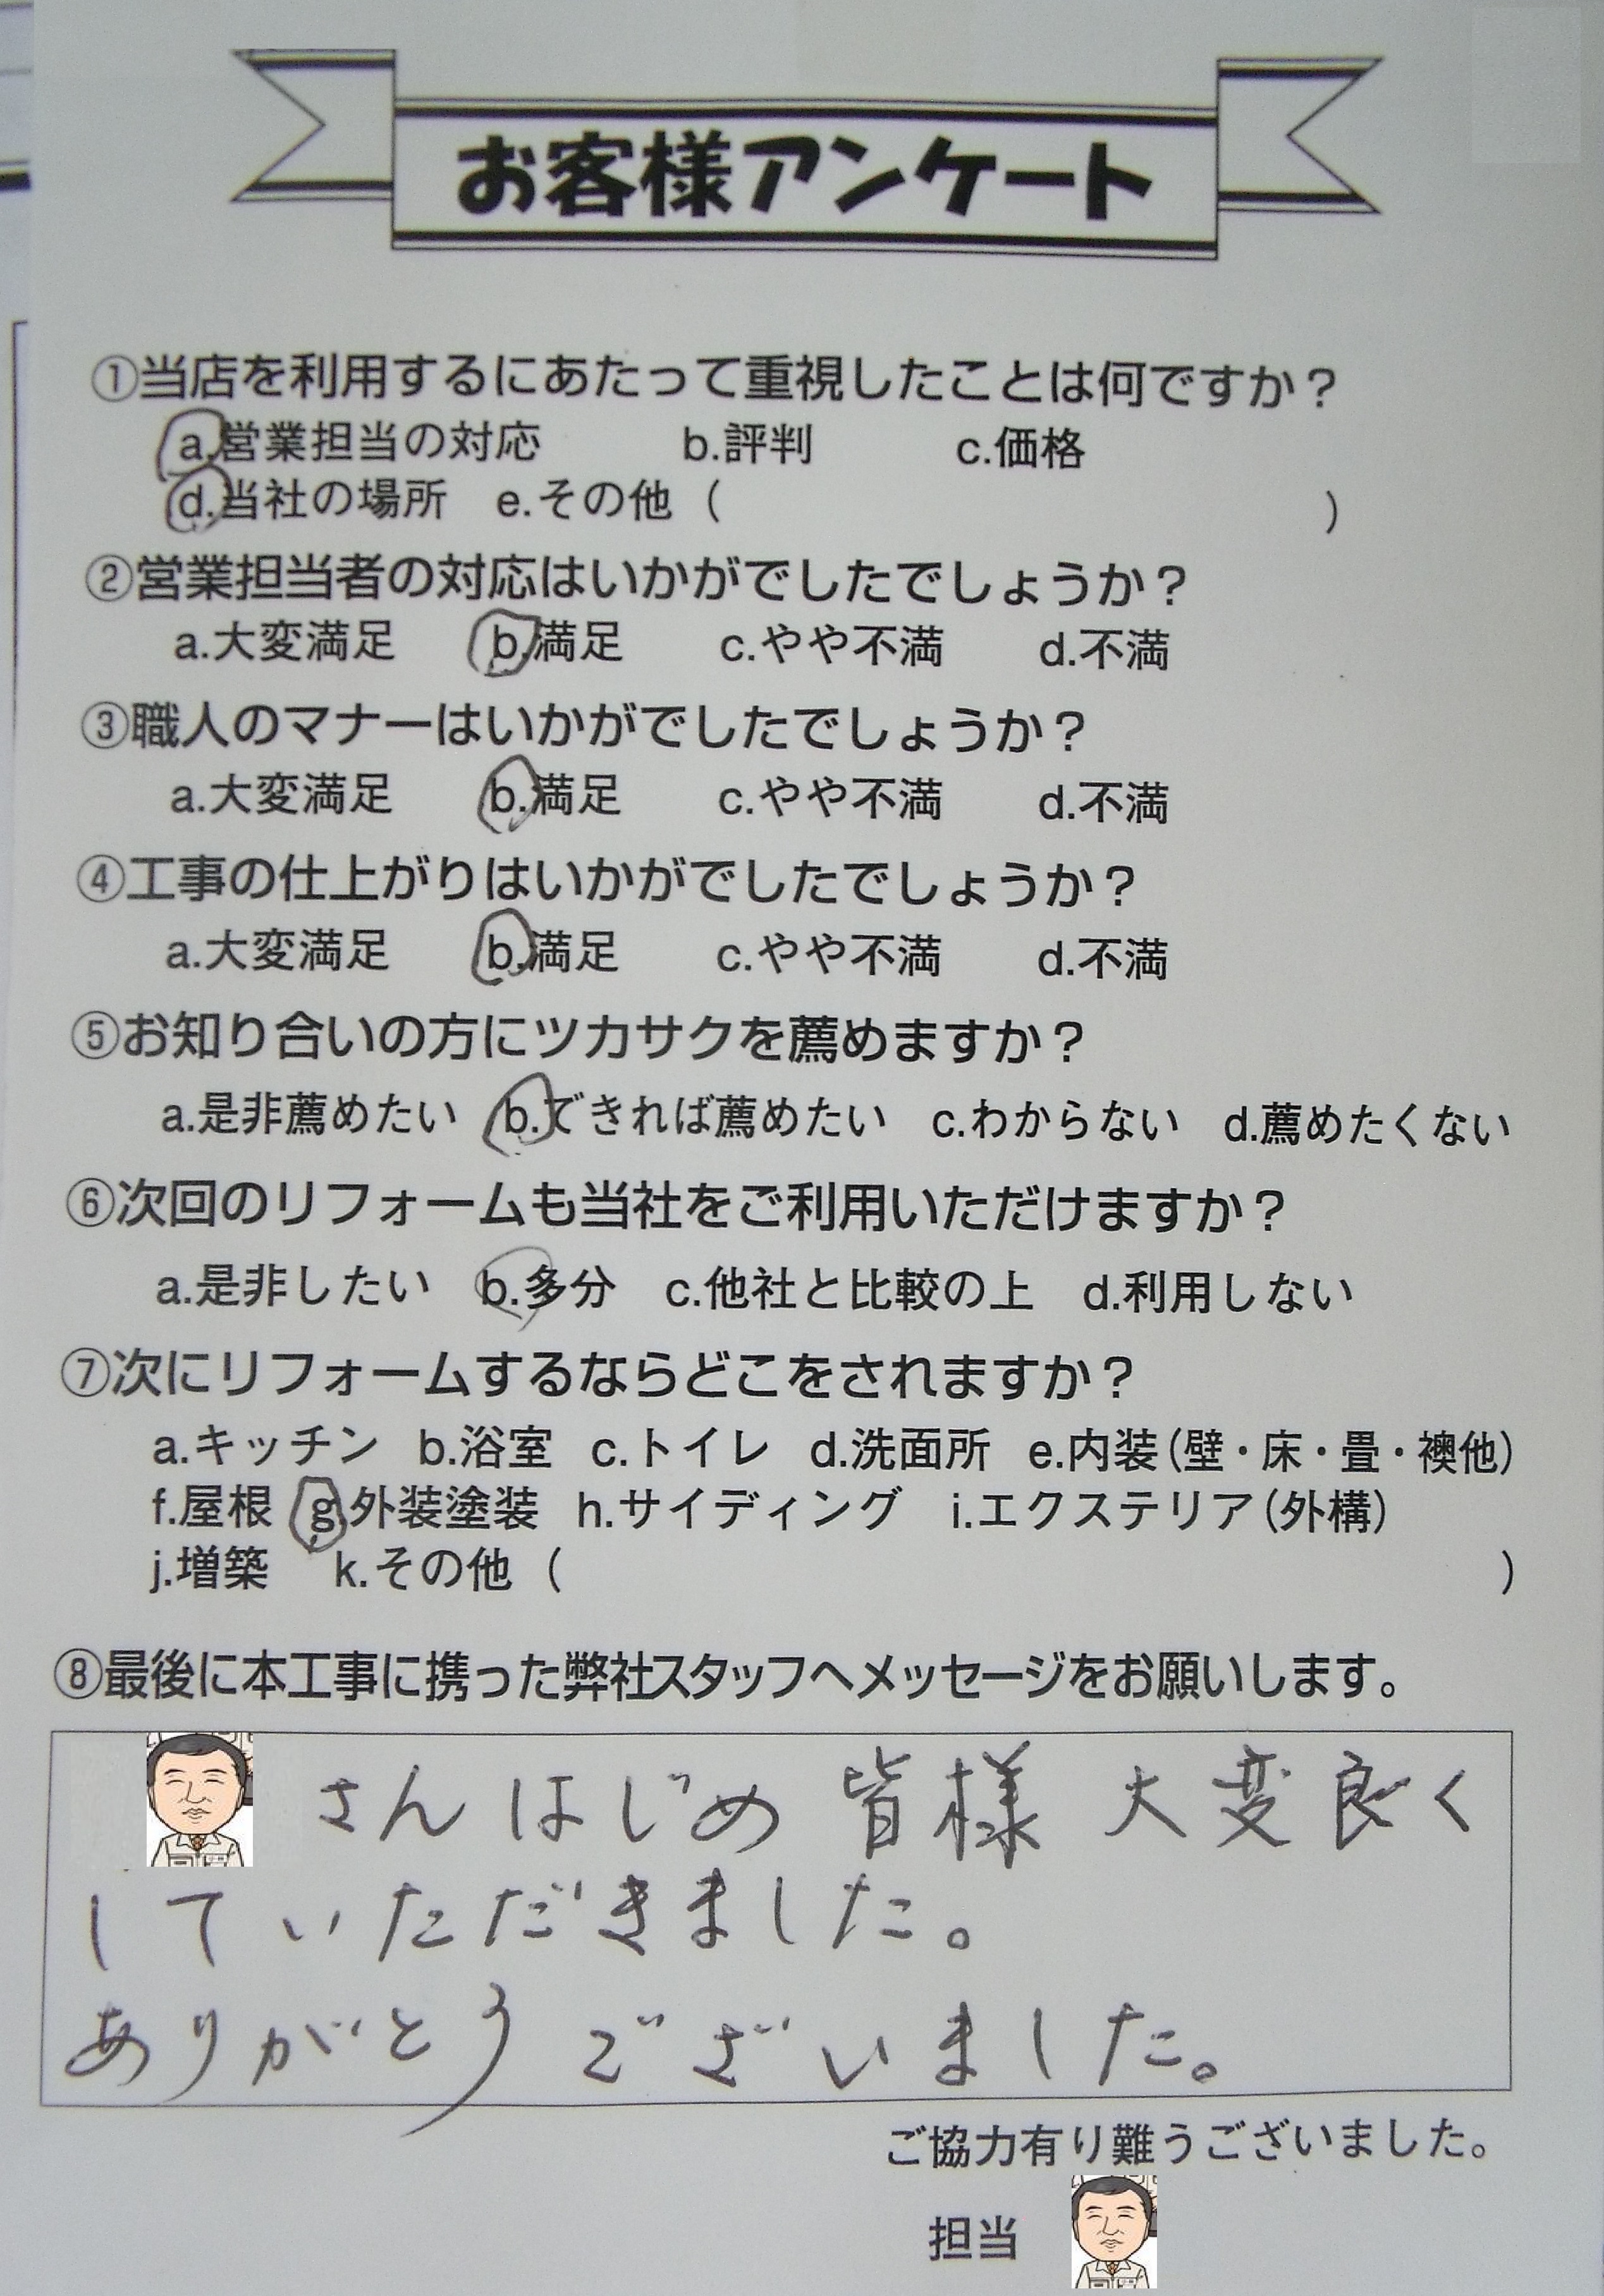 お客様アンケート
①当店を利用するにあたって重視したことは何ですか？
a.営業担当の対応 b.評判 c.価格
d.当社の場所 e.その他（ ）
②営業担当者の対応はいかがでしたでしょうか？
a.大変満足 b.満足 c.やや不満 d.不満
③職人のマナーはいかがでしたでしょうか？
a.大変満足 b.満足 c.やや不満 d.不満
④工事の仕上がりはいかがでしたでしょうか？
a.大変満足 b.満足 c.やや不満 d.不満
⑤お知り合いの方にツカサクを薦めますか？
a.是非薦めたい b.できれば薦めたい c.わからない d.薦めたくない
⑥次回のリフォームも当社をご利用いただけますか？
a.是非したい b.多分 c.他社と比較の上 d.利用しない
⑦次にリフォームするならどこをされますか？
a.キッチン b.浴室 c.トイレ d.洗面所 e.内装（壁・床・畳・襖他）
f.屋根 g.外装塗装 h.サイディング i.エクステリア（外構）
j.増築 k.その他（ ）
⑧最後に本工事に携った弊社スタッフへメッセージをお願いします。
さんはじめ 皆様 大変良く
していただきました。
ありがとうございました。
ご協力有り難うございました。
担当